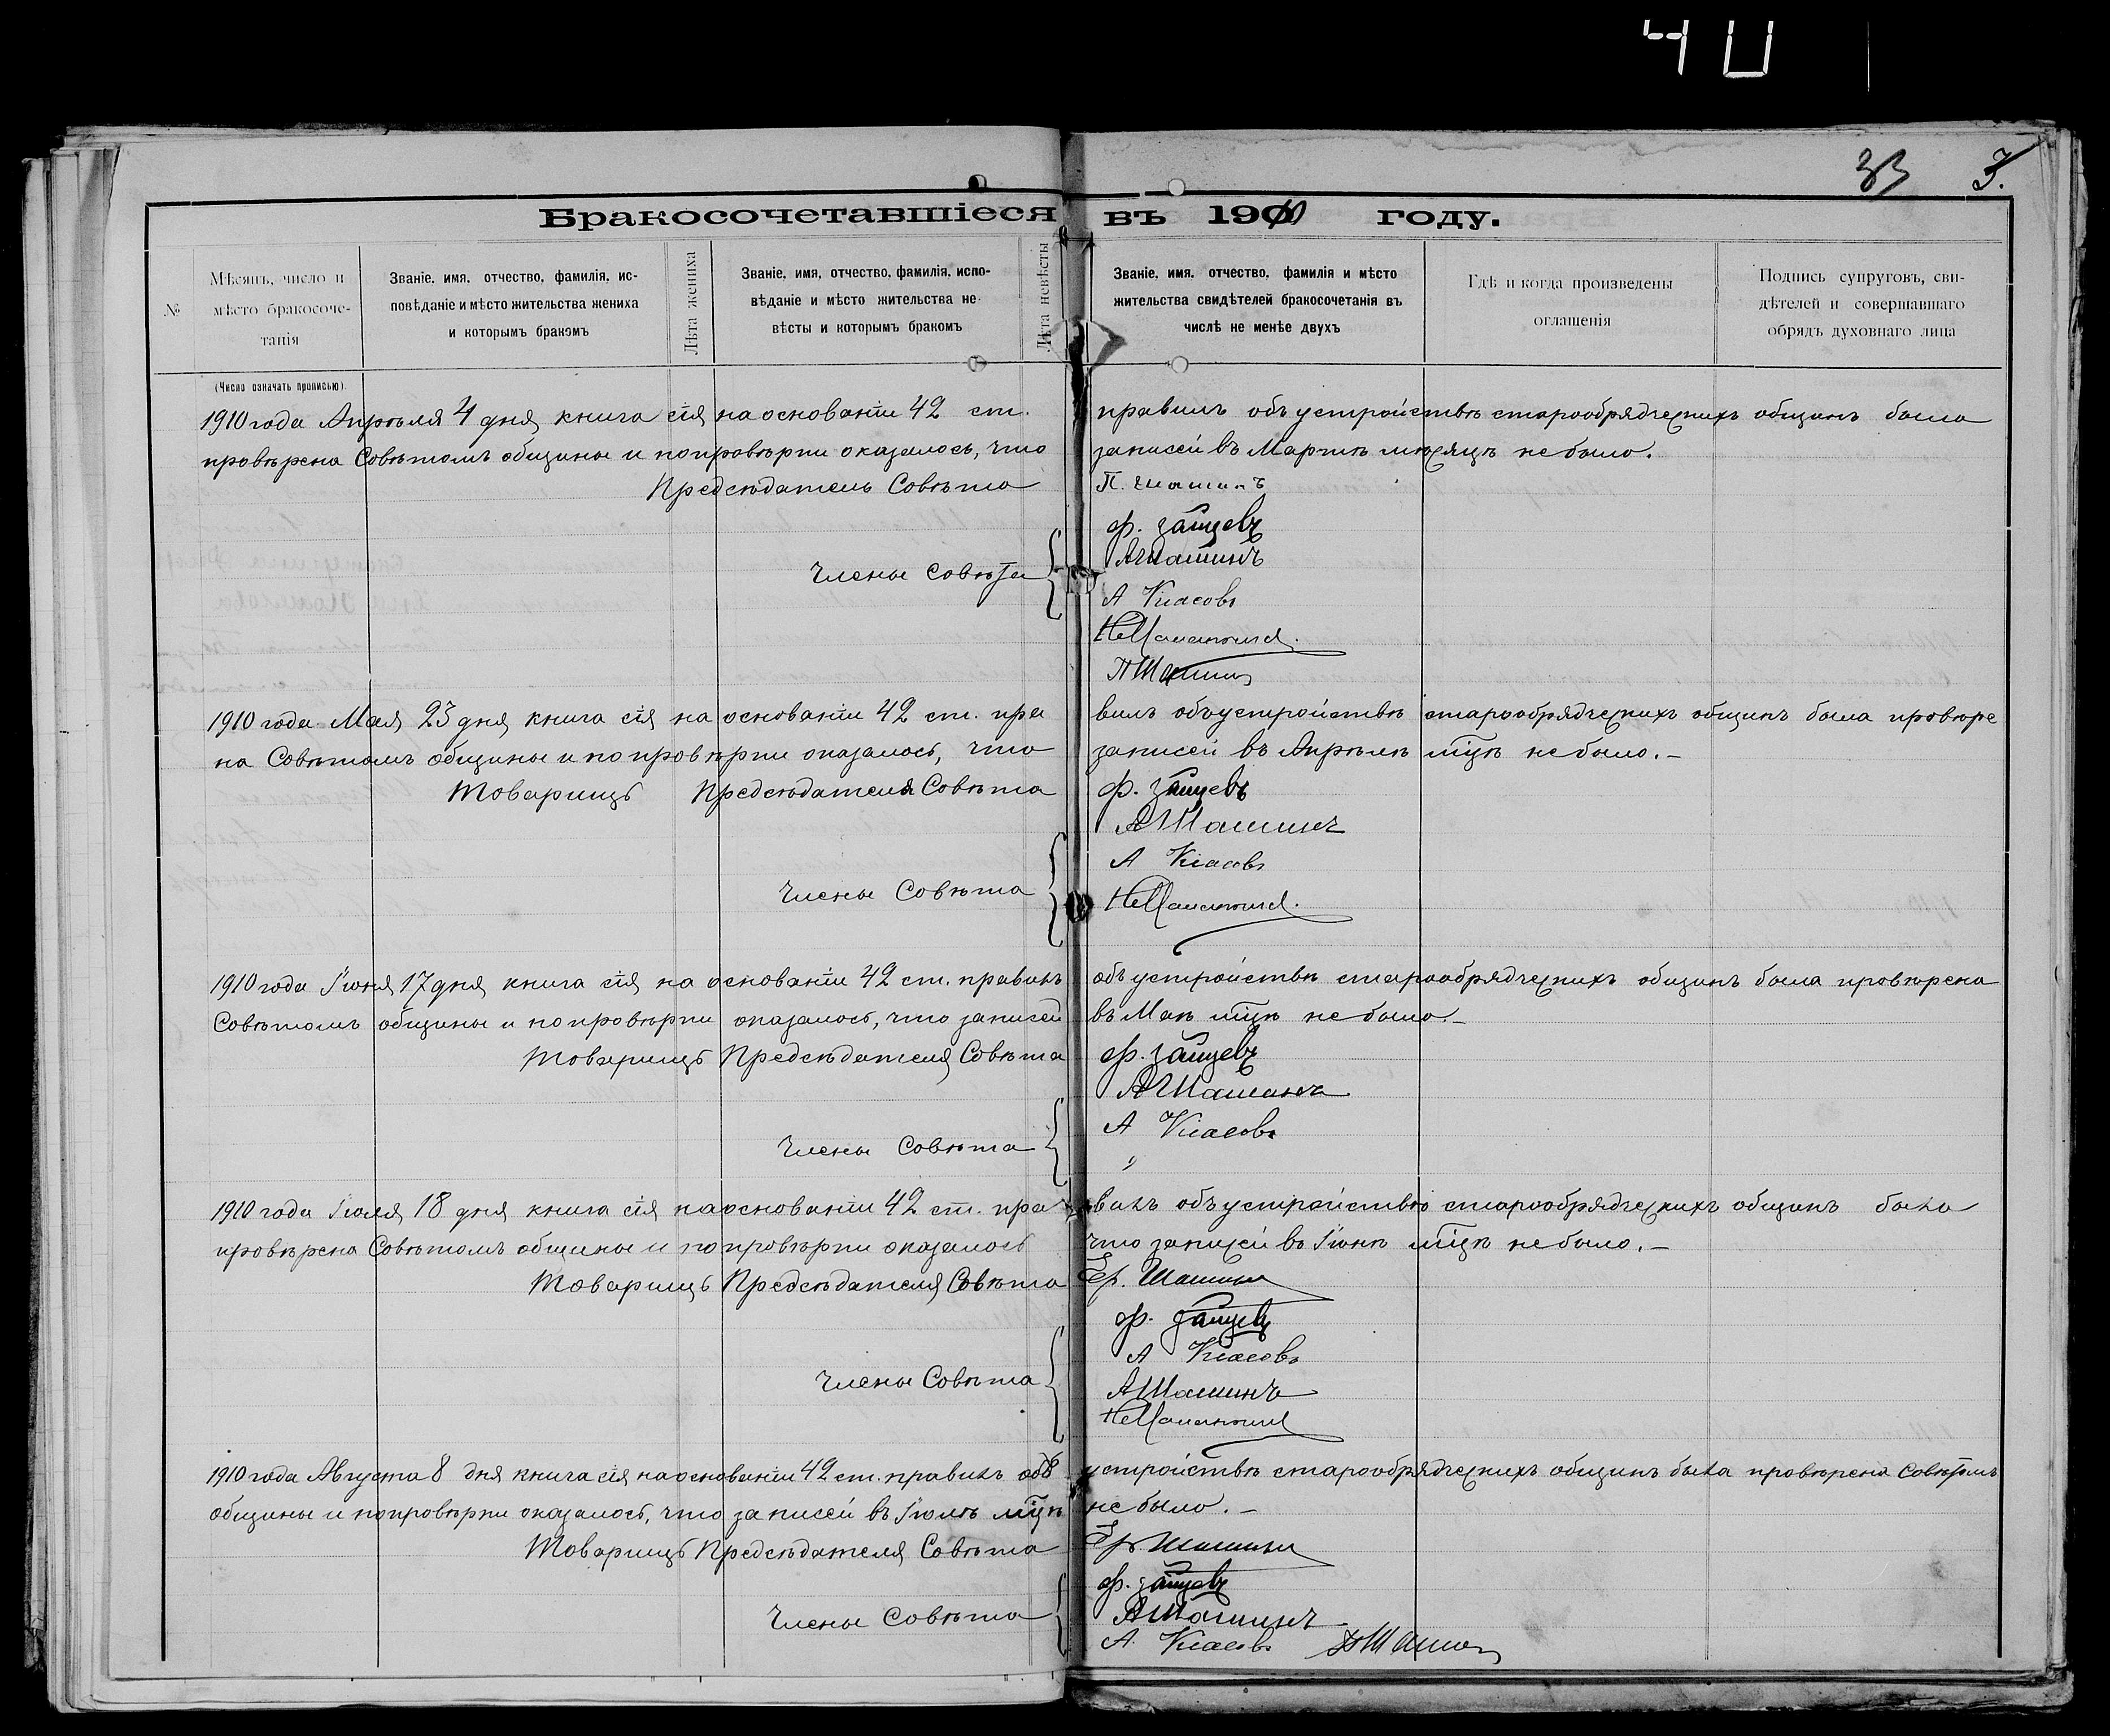 40
33 3.
Бракосочетавшіеся въ 1910 году.
№
Мѣсяцъ, число и мѣсто бракосочетанія
Званіе, имя, отчество, фамилія, исповѣданіе и мѣсто жительства жениха и которымъ бракомъ
Лѣта жениха
Званіе, имя, отчество, фамилія, исповѣданіе и мѣсто жительства невѣсты и которымъ бракомъ
Лѣта невѣсты
Званіе, имя, отчество, фамилія и мѣсто жительства свидѣтелей бракосочетанія въ числѣ не менѣе двухъ
Гдѣ и когда произведены оглашенія
Подпись супруговъ, свидѣтелей и совершавшаго обрядъ духовнаго лица
(Число означать прописью).
1910 года Апрѣля 4 дня книга сія на основаніи 42 ст. правилъ объ устройствѣ старообрядческихъ общинъ была
провѣрена Совѣтомъ общины и по провѣрки оказалось, что записей въ Мартѣ мѣсяцѣ не было.
Предсѣдатель Совѣта П. Шашинъ
Ф. Зайцевъ
АШашинъ
Члены Совѣта
А Класовъ
ПШашинъ
1910 года Мая 23 дня книга сія на основаніи 42 ст. правилъ объ устройствѣ старообрядческихъ общинъ была провѣре
на Совѣтомъ общины и по провѣрки оказалось, что записей въ Апрѣлѣ мцѣ не было. –
Товарищъ Предсѣдателя Совѣта Ф. Зайцевъ
АШашинъ
А Класовъ
Члены Совѣта
1910 года Іюня 17 дня книга сія на основаніи 42 ст. правилъ объ устройствѣ старообрядческихъ общинъ была провѣрена
Совѣтомъ общины и по провѣрки оказалось, что записей въ Маѣ мцѣ не было –
Товарищъ Предсѣдателя Совѣта Ф. Зайцевъ
АШашинъ
А Класовъ
Члены Совѣта
1910 года Іюля 18 дня книга сія на основаніи 42 ст. правилъ объ устройствѣ старообрядческихъ общинъ была
провѣрена Совѣтомъ общины и по провѣрки оказалось что записей въ Іюнѣ мцѣ не было. –
Товарищъ Предсѣдателя Совѣта Гр. Шашинъ
Ф. Зайцевъ
А Класовъ
Члены Совѣта
АШашинъ
1910 года Августа 8 дня книга сія на основаніи 42 ст. правилъ объ устройствѣ старообрядческихъ общинъ была провѣрена Совѣтомъ
общины и по провѣрки оказалось, что записей въ Іюлѣ мцѣ не было. –
Товарищъ Предсѣдателя Совѣта Гр. Шашинъ
Ф. Зайцевъ
Члены Совѣта АШашинъ
А. Класовъ